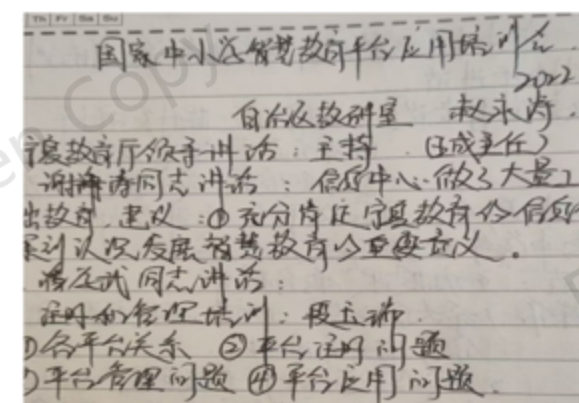 Th Fr Sa Su
国家中小学智慧教育平台应用培训会
2022
自治区教研室 赵永涛
宁夏教育厅领导讲话：主持 （王成主任）
谢 涛同志讲话：信息中心做了大量工
出教育，建议：①充分肯定宁夏教育的信息
深刻认识发展智慧教育的重要意义。
同志讲话：
注册和管理培训：段立瑞
①各平台关系 ②平台注册问题
③平台管理问题 ④平台应用问题